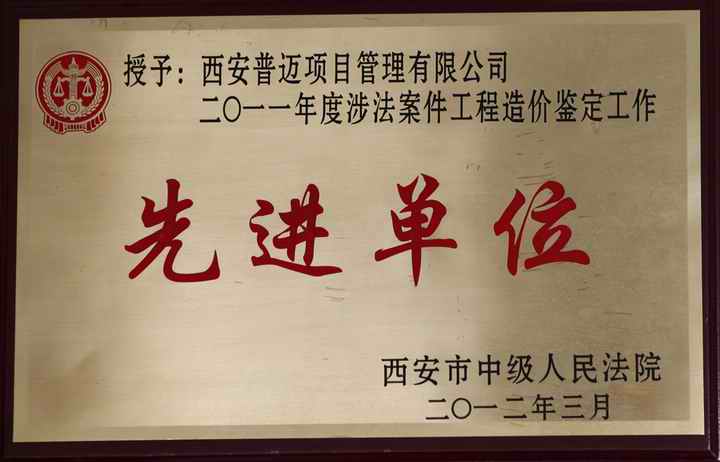 授予：西安普迈项目管理有限公司
二〇一一年度涉法案件工程造价鉴定工作
先进单位
西安市中级人民法院
二〇一二年三月